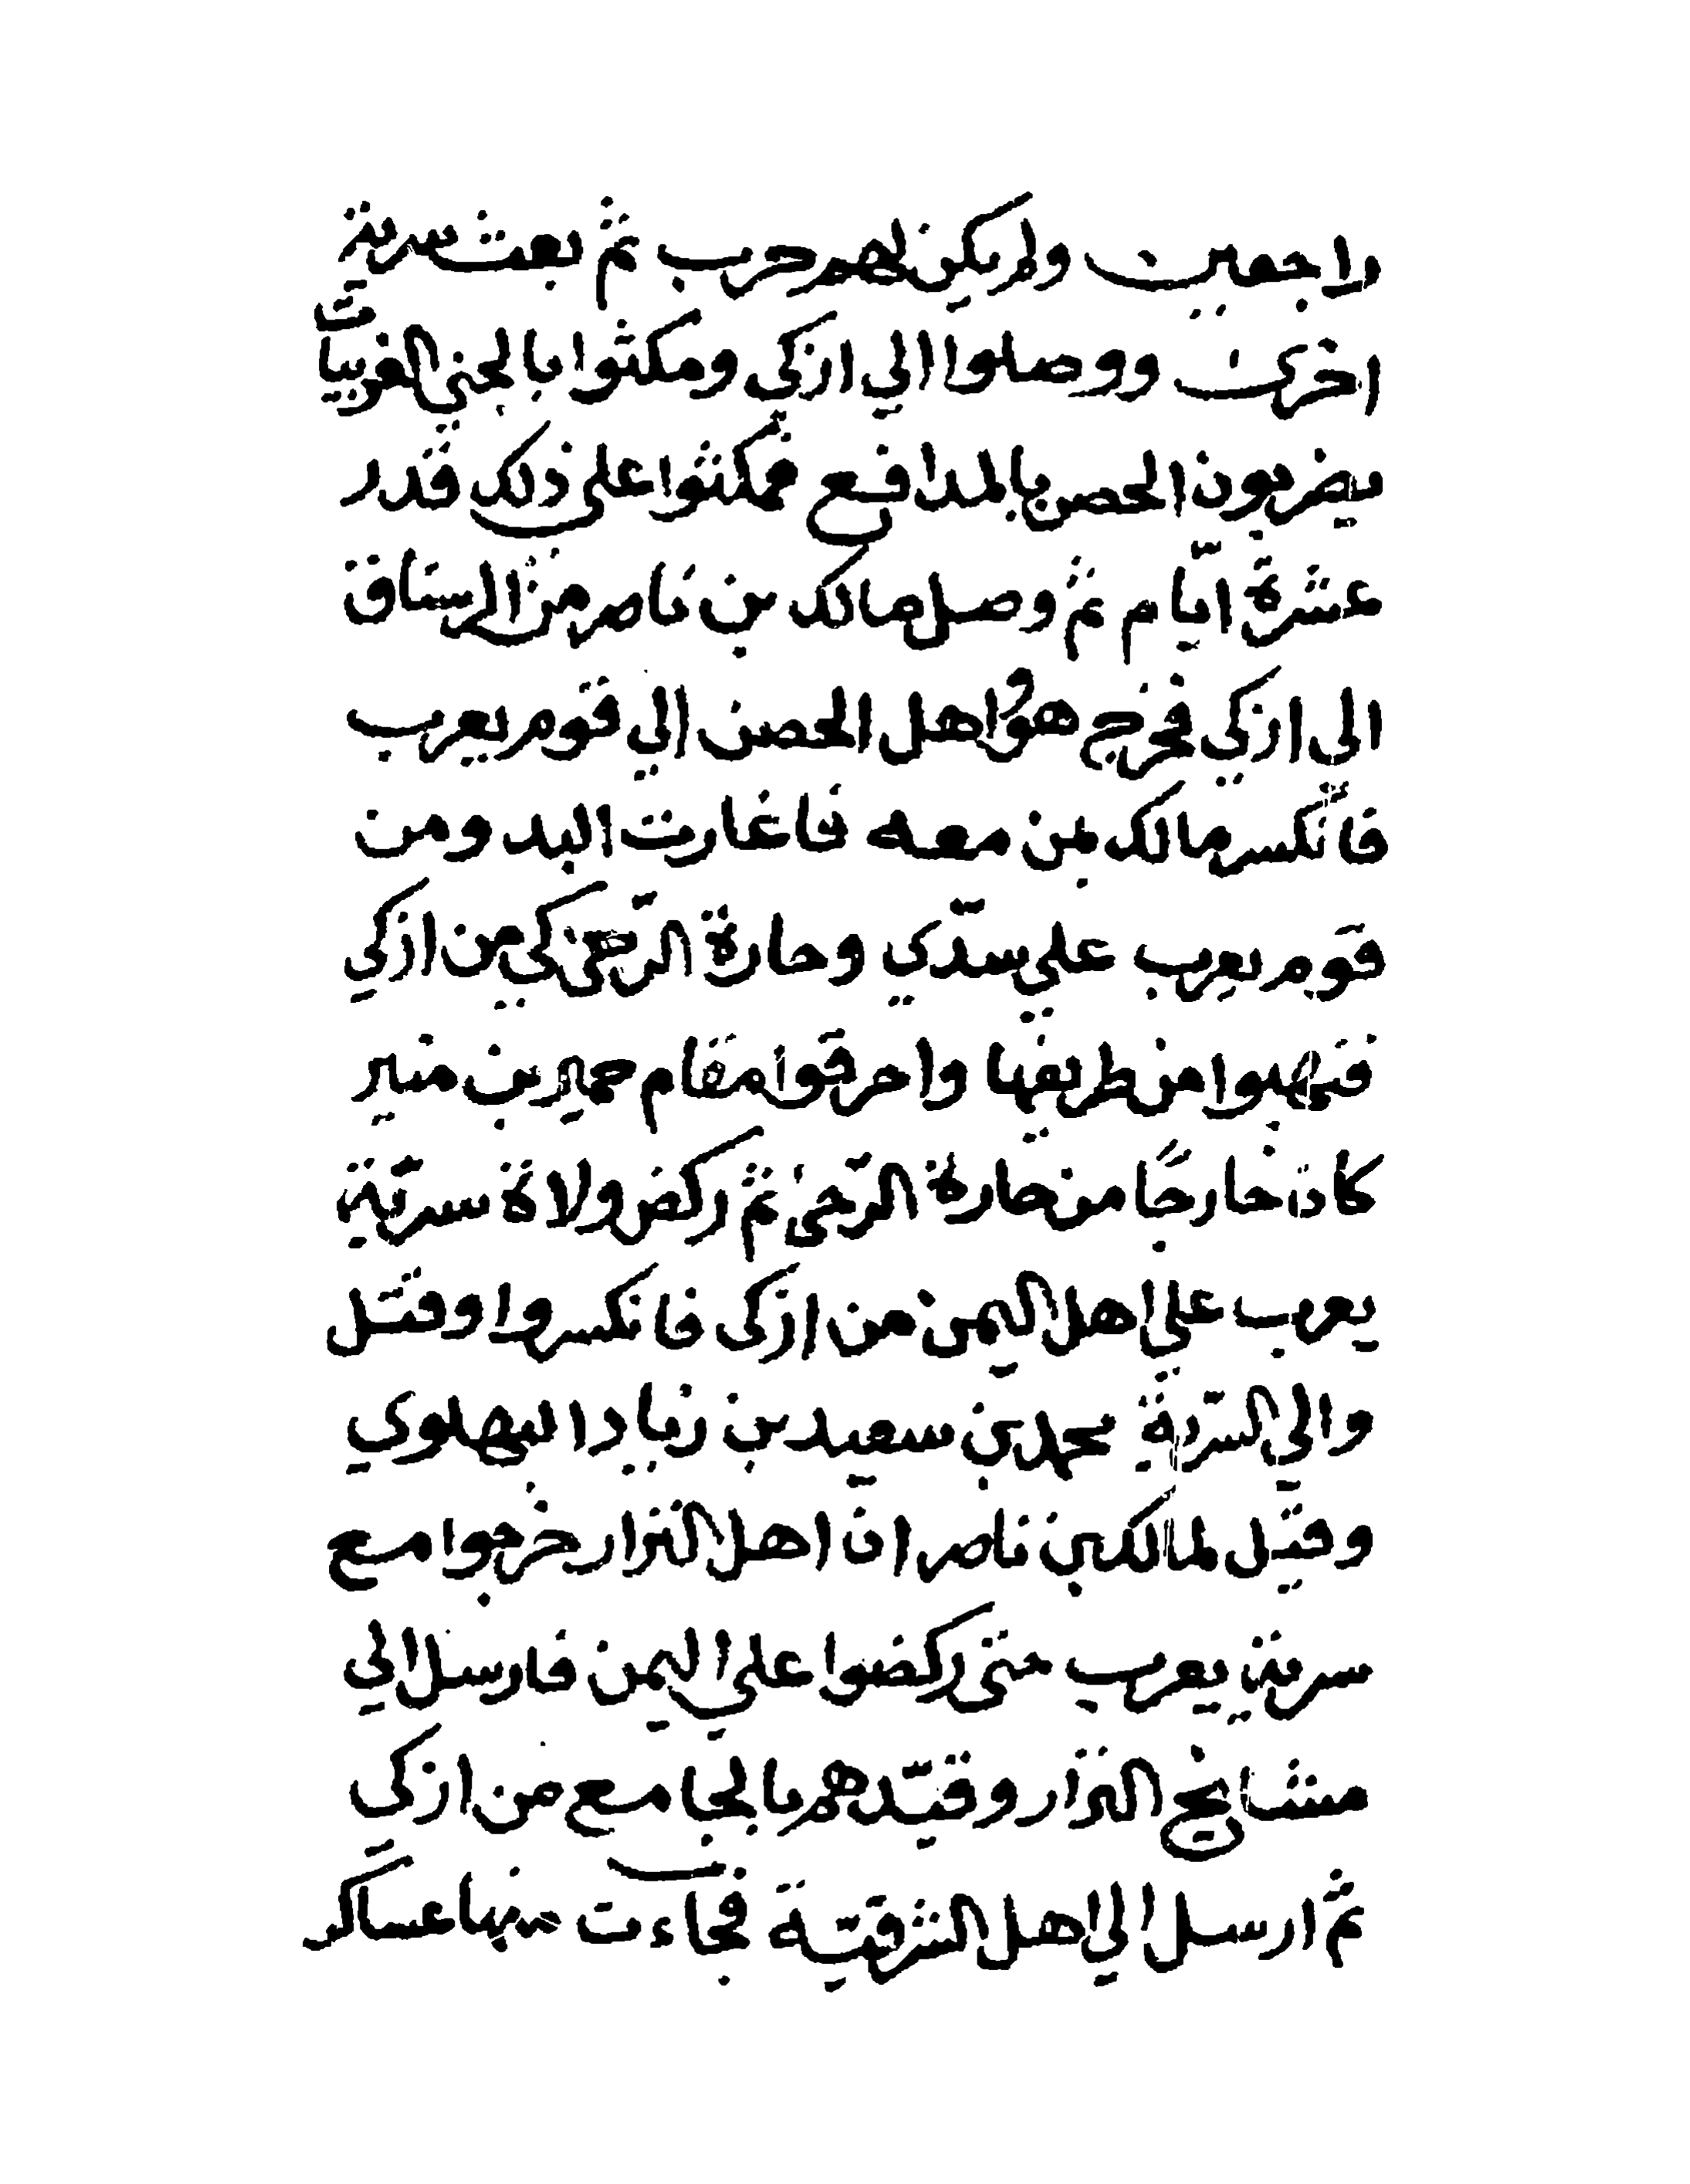 راجعين ولم يكن لهم حرب ثم بعث سرية
اخرى ووصلوا الي ازكى ومكثوا بالجني الغربيات
يضربون الحصن بالمدافع فمكثوا على ذلك قدر
عشرة ايّام ثم وصل مالك بن ناصر من الرستاق
الى ازكي فخرج هو واهل الحصن الي قوم يعرب
فانكسر مالك بمن معه فاغارت البدو من
قوم يعرب علي سدّي وحارة الرّحى كي من ازكي
فنهبوا من طريفها واحرقوا مقام حمير بن منير
كان خارجًا من حارة الرّحى ثم ركض ولاة سريّة
يعرب علي اهل اليمن من ازكى فانكسروا وقتل
والي السّرية محمد بن سعيد بن زياد البهلوي
وقيل لمالك بن ناصر ان اهل النزار خرجوا مع
سرية يعرب حتى ركضوا علي اليمن فارسل الي
مشايخ النزار وقيّدهم بالجامع من ازكى
ثم ارسل الي اهل الشرقيّة فجاءت منها عساكر